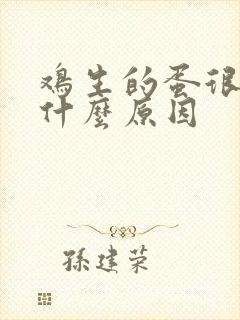 鳮生的蛋很
什麼原因
孫建荣